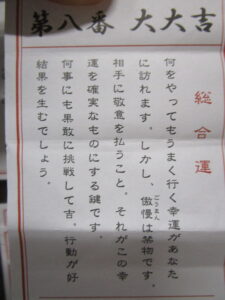 第八番 大大吉
総合運
何をやってもうまく行く幸運があなた
に訪れます。しかし、傲慢は禁物です。
ごうまん
相手に敬意を払うこと。それがこの幸
運を確実なものにする鍵です。
何事にも果敢に挑戦して吉。行動が好
結果を生むでしょう。